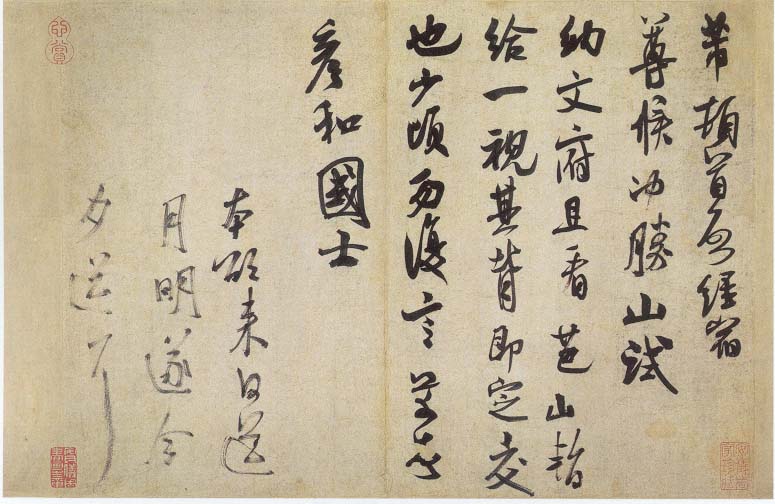 芾頓首啟經宿
尊候冲勝山試
納文府且看芭山暫
給一視其背即定交
也少頃勿復言芾頓首
彦和國士
本欲來日送
月明遂今
夕送耳